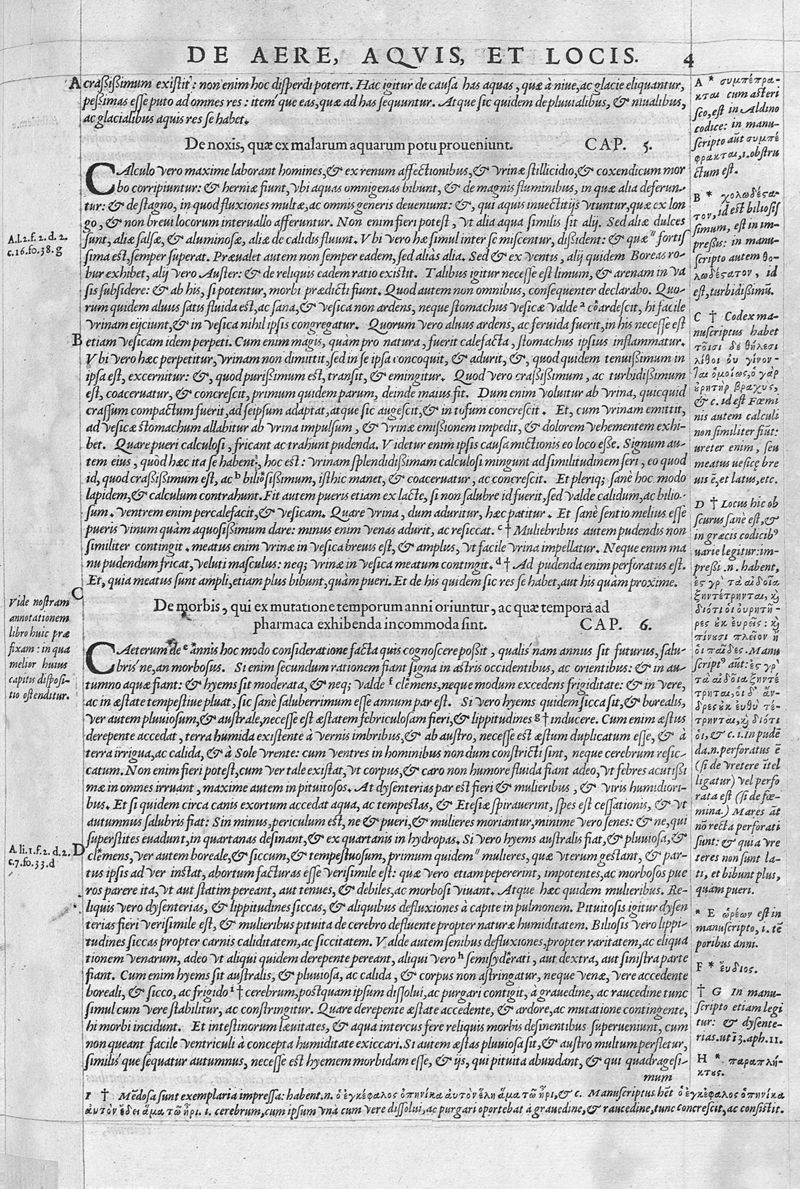 DE AERE, AQVIS, ET LOCIS. 4
A craßißimum existit: non enim hoc disperdi poterit. Hac igitur de causa has aquas, quæ à niue, ac glacie eliquantur,
peßimas esse puto ad omnes res: item que eas, quæ ad has sequuntur. Atque sic quidem de pluuialibus, & niualibus,
ac glacialibus aquis res se habet.
De noxis, quæ ex malarum aquarum potu proueniunt. CAP. 5.
CAlculo vero maxime laborant homines, & ex renum affectionibus, & vrinæ stillicidio, & coxendicum mor
bo corripiuntur: & herniæ fiunt, vbi aquas omnigenas bibunt, & de magnis fluminibus, in quæ alia deferun-
tur: & de stagno, in quod fluxiones multæ, ac omnis generis deueniunt: &, qui aquis inuectitijs vtuntur, quæ ex lon
go, & non breui locorum interuallo afferuntur. Non enim fieri potest, vt alia aqua similis sit alij. Sed aliæ dulces
sunt, aliæ salsæ, & aluminosæ, aliæ de calidis fluunt. Vbi vero hæ simul inter se miscentur, dißident: & quæ fortis
sima est, semper superat. Præualet autem non semper eadem, sed aliàs alia. Sed & ex ventis, alij quidem Boreas ro-
bur exhibet, alij vero Auster: & de reliquis eadem ratio existit. Talibus igitur necesse est limum, & arenam in va
sis subsidere: & ab his, si potentur, morbi prædicti fiunt. Quod autem non omnibus, consequenter declarabo. Quo-
rum quidem aluus satis fluida est, ac sana, & vesica non ardens, neque stomachus vesicæ valde a cōardescit, hi facile
vrinam eijciunt, & in vesica nihil ipsis congregatur. Quorum vero aluus ardens, ac feruida fuerit, in his necesse est
B etiam vesicam idem perpeti. Cum enim magis, quàm pro natura, fuerit calefacta, stomachus ipsius inflammatur.
Vbi vero hæc perpetitur, vrinam non dimittit, sed in se ipsa concoquit, & adurit, &, quod quidem tenuißimum in
ipsa est, excernitur: &, quod purißimum est, transit, & emingitur. Quod vero craßißimum, ac turbidißimum
est, coaceruatur, & concrescit, primum quidem parum, deinde maius fit. Dum enim voluitur ab vrina, quicquid
crassum compactum fuerit, ad seipsum adaptat, atque sic augescit, & in tofum concrescit. Et, cum vrinam emittit,
ad vesicæ stomachum allabitur ab vrina impulsum, & vrinæ emissionem impedit, & dolorem vehementem exhi-
bet. Quare pueri calculosi, fricant ac trahunt pudenda. Videtur enim ipsis causa mictionis eo loco esse. Signum au-
tem eius, quòd hæc ita se habent, hoc est: vrinam splendidißimam calculosi mingunt ad similitudinem seri, eo quod
id, quod craßißimum est, ac b biliosißimum, isthic manet, & coaceruatur, ac concrescit. Et pleriq; sanè hoc modo
lapidem, & calculum contrahunt. Fit autem pueris etiam ex lacte, si non salubre id fuerit, sed valde calidum, ac bilio-
sum. Ventrem enim percalefacit, & vesicam. Quare vrina, dum aduritur, hæc patitur. Et sanè sentio melius esse
pueris vinum quàm aquosißimum dare: minus enim venas adurit, ac resiccat. c † Muliebribus autem pudendis non
similiter contingit. meatus enim vrinæ in vesica breuis est, & amplus, vt facile vrina impellatur. Neque enim ma
nu pudendum fricat, veluti masculus: neq; vrinæ in vesica meatum contingit. d † Ad pudenda enim perforatus est.
Et, quia meatus sunt ampli, etiam plus bibunt, quàm pueri. Et de his quidem sic res se habet, aut his quàm proxime.
C
De morbis, qui ex mutatione temporum anni oriuntur, ac quæ tempora ad
pharmaca exhibenda incommoda sint. CAP. 6.
CAeterum de e annis hoc modo consideratione facta quis cognoscere poßit, qualis nam annus sit futurus, salu-
bris ne, an morbosus. Si enim secundum rationem fiant signa in astris occidentibus, ac orientibus: & in au-
tumno aquæ fiant: & hyems sit moderata, & neq; valde f clemens, neque modum excedens frigiditate: & in vere,
ac in æstate tempestiue pluat, sic sanè saluberrimum esse annum par est. Si vero hyems quidem sicca sit, & borealis,
ver autem pluuiosum, & australe, necesse est æstatem febriculosam fieri, & lippitudines g † inducere. Cum enim æstus
derepente accedat, terra humida existente à vernis imbribus, & ab austro, necesse est æstum duplicatum esse, & à
terra irrigua, ac calida, & à Sole vrente: cum ventres in hominibus non dum constricti sint, neque cerebrum resic-
catum. Non enim fieri potest, cum ver tale existat, vt corpus, & caro non humore fluida fiant adeo, vt febres acutißi
mæ in omnes irruant, maxime autem in pituitosos. At dysenterias par est fieri & mulieribus, & viris humidiori-
bus. Et si quidem circa canis exortum accedat aqua, ac tempestas, & Etesiæ spirauerint, spes est cessationis, & vt
autumnus salubris fiat: Sin minus, periculum est, ne & pueri, & mulieres moriantur, minime vero senes: & ne, qui
superstites euadunt, in quartanas desinant, & ex quartanis in hydropas. Si vero hyems australis fiat, & pluuiosa, &
D clemens, ver autem boreale, & siccum, & tempestuosum, primum quidem mulieres, quæ vterum gestant, & par-
tus ipsis ad ver instat, abortum facturas esse verisimile est: quæ vero etiam pepererint, impotentes, ac morbosos pue
ros parere ita, vt aut statim pereant, aut tenues, & debiles, ac morbosi viuant. Atque hæc quidem mulieribus. Re-
liquis vero dysenterias, & lippitudines siccas, & aliquibus defluxiones à capite in pulmonem. Pituitosis igitur dysen
terias fieri verisimile est, & mulieribus pituita de cerebro defluente propter naturæ humiditatem. Biliosis vero lippi-
tudines siccas propter carnis caliditatem, ac siccitatem. Valde autem senibus defluxiones, propter raritatem, ac eliqua
tionem venarum, adeo vt aliqui quidem derepente pereant, aliqui vero h semisyderati, aut dextra, aut sinistra parte
fiant. Cum enim hyems sit australis, & pluuiosa, ac calida, & corpus non astringatur, neque venæ, vere accedente
boreali, & sicco, ac frigido i † cerebrum, postquam ipsum dissolui, ac purgari contigit, à grauedine, ac raucedine tunc
simul cum vere stabilitur, ac constringitur. Quare derepente æstate accedente, & ardore, ac mutatione contingente,
hi morbi incidunt. Et intestinorum læuitates, & aqua intercus fere reliquis morbis desinentibus superueniunt, cum
non queant facile ventriculi à concepta humiditate exiccari. Si autem æstas pluuiosa sit, & austro multum perstetur,
similis que sequatur autumnus, necesse est hyemem morbidam esse, & ijs, qui pituita abundant, & qui quadragesi-
mum
I † Mēdosa sunt exemplaria impressa: habent.n. ὁ ἐγκέφαλος ὁπηνίκα αὐτὸν ἕλη ἅμα τῷ ἦρι, & c. Manuscriptus hēt ὁ ἐγκέφαλος ὁπηνίκα
αὐτὸν ἔδει ἅμα τῷ ἦρι .i. cerebrum, cum ipsum vna cum vere dissolui, ac purgari oportebat à grauedine, & raucedine, tunc concrescit, ac consistit.
A.l.2.f.2.d.2.
c.16.fo.38.g
Vide nostram
annotationem
libro huic præ
fixam: in qua
melior huius
capitis disposi-
tio ostenditur.
A.li.1.f.2.d.2.
c.7.fo.33.d
A * συμπέπρα-
κται cum asteri
sco, est in Aldino
codice: in manu-
scripto aūt συμπέ
φρακται, .i. obstru
ctum est.
B * χολωδέςα-
τον, id est biliosis
simum, est in im-
preßis: in manu-
scripto autem θο-
λωδέςατον, id
est, turbidißimū.
C † Codex ma-
nuscriptus habet
τοῖσι δὲ θήλεσι
λίθοι οὐ γίνον-
ται ὁμοίως, ὁ γὰρ
ἐρητὴρ βραχὺς,
& c. id est Fœmi
nis autem calculi
non similiter fiūt:
vreter enim, seu
meatus vesicę bre
uis ē, et latus, etc.
D † Locus hic ob
scurus sanè est, &
in græcis codicib'
varie legitur: im-
preßi .n. habent,
ἐς γὰρ τὰ αἰδοῖα
ξηντέτρηνται, κὶ
διότι οἱ οὐρητῆ-
ρες ἐκ εὐρεῖς: κὶ
πίνουσι πλεῖον ἢ
οἱ παῖδες. Manu
script' aūt: ἐς γὰρ
τὰ αἰδοῖα ξηντέ
τρηται, οἱ δ' ἄν-
δρες ἐκ εὐθὺ τέ-
τρηνται, κὶ διότι
οἱ, & c. i. In pudē
da .n. perforatus ē
(si de vretere ītel
ligatur) vel perfo
rata est (si de fœ-
mina.) Mares āt
nō recta perforati
sunt: & quia vre
teres non sunt la-
ti, et bibunt plus,
quàm pueri.
* E ὡρέων est in
manuscripto, i. tē
poribus anni.
F * εὔδιος.
† G In manu-
scripto etiam legi
tur: & dysente-
rias. vt ī 3. aph. 11.
H * παραπλή-
κτες.